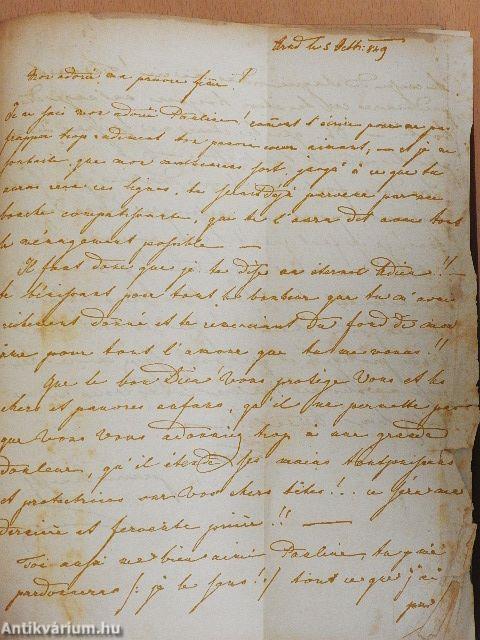 Arad le 5 Octb: 849
Mon adorée ma pauvre femme!
Je ne sais mon adorée Pauline! comment t'écrire pour ne pas
frapper trop rudement ton pauvre coeur aimant, — et je ne
souhaite, que mon malheureux sort, jusqu'à ce que tu
auras reçu ces lignes, te serait déjà parvenu par une
bouche compatissante, qui te l'aura dit avec tout
le ménagement possible —
Il faut donc que je te dise un éternel Adieu!! —
te bénissant pour tout le bonheur que tu m'avais
richement donné et te remerciant du fond de mon
âme pour tout l'amour que tu me vouas!!
Que le bon Dieu! Vous protège Vous et les
chers et pauvres enfans, qu'il ne permette pas
que Vous Vous adonniez trop à une grande
douleur, qu'il étende ses mains toutpuissans
et protectrices sur Vos chers têtes!.. ce sera ma
dernière et fervente prière!! —
Toi aussi ma bien aimée Pauline, tu m'as
pardonneras /: je le sens! :/ tout ce que j'ai
pu
Antikvárium.hu